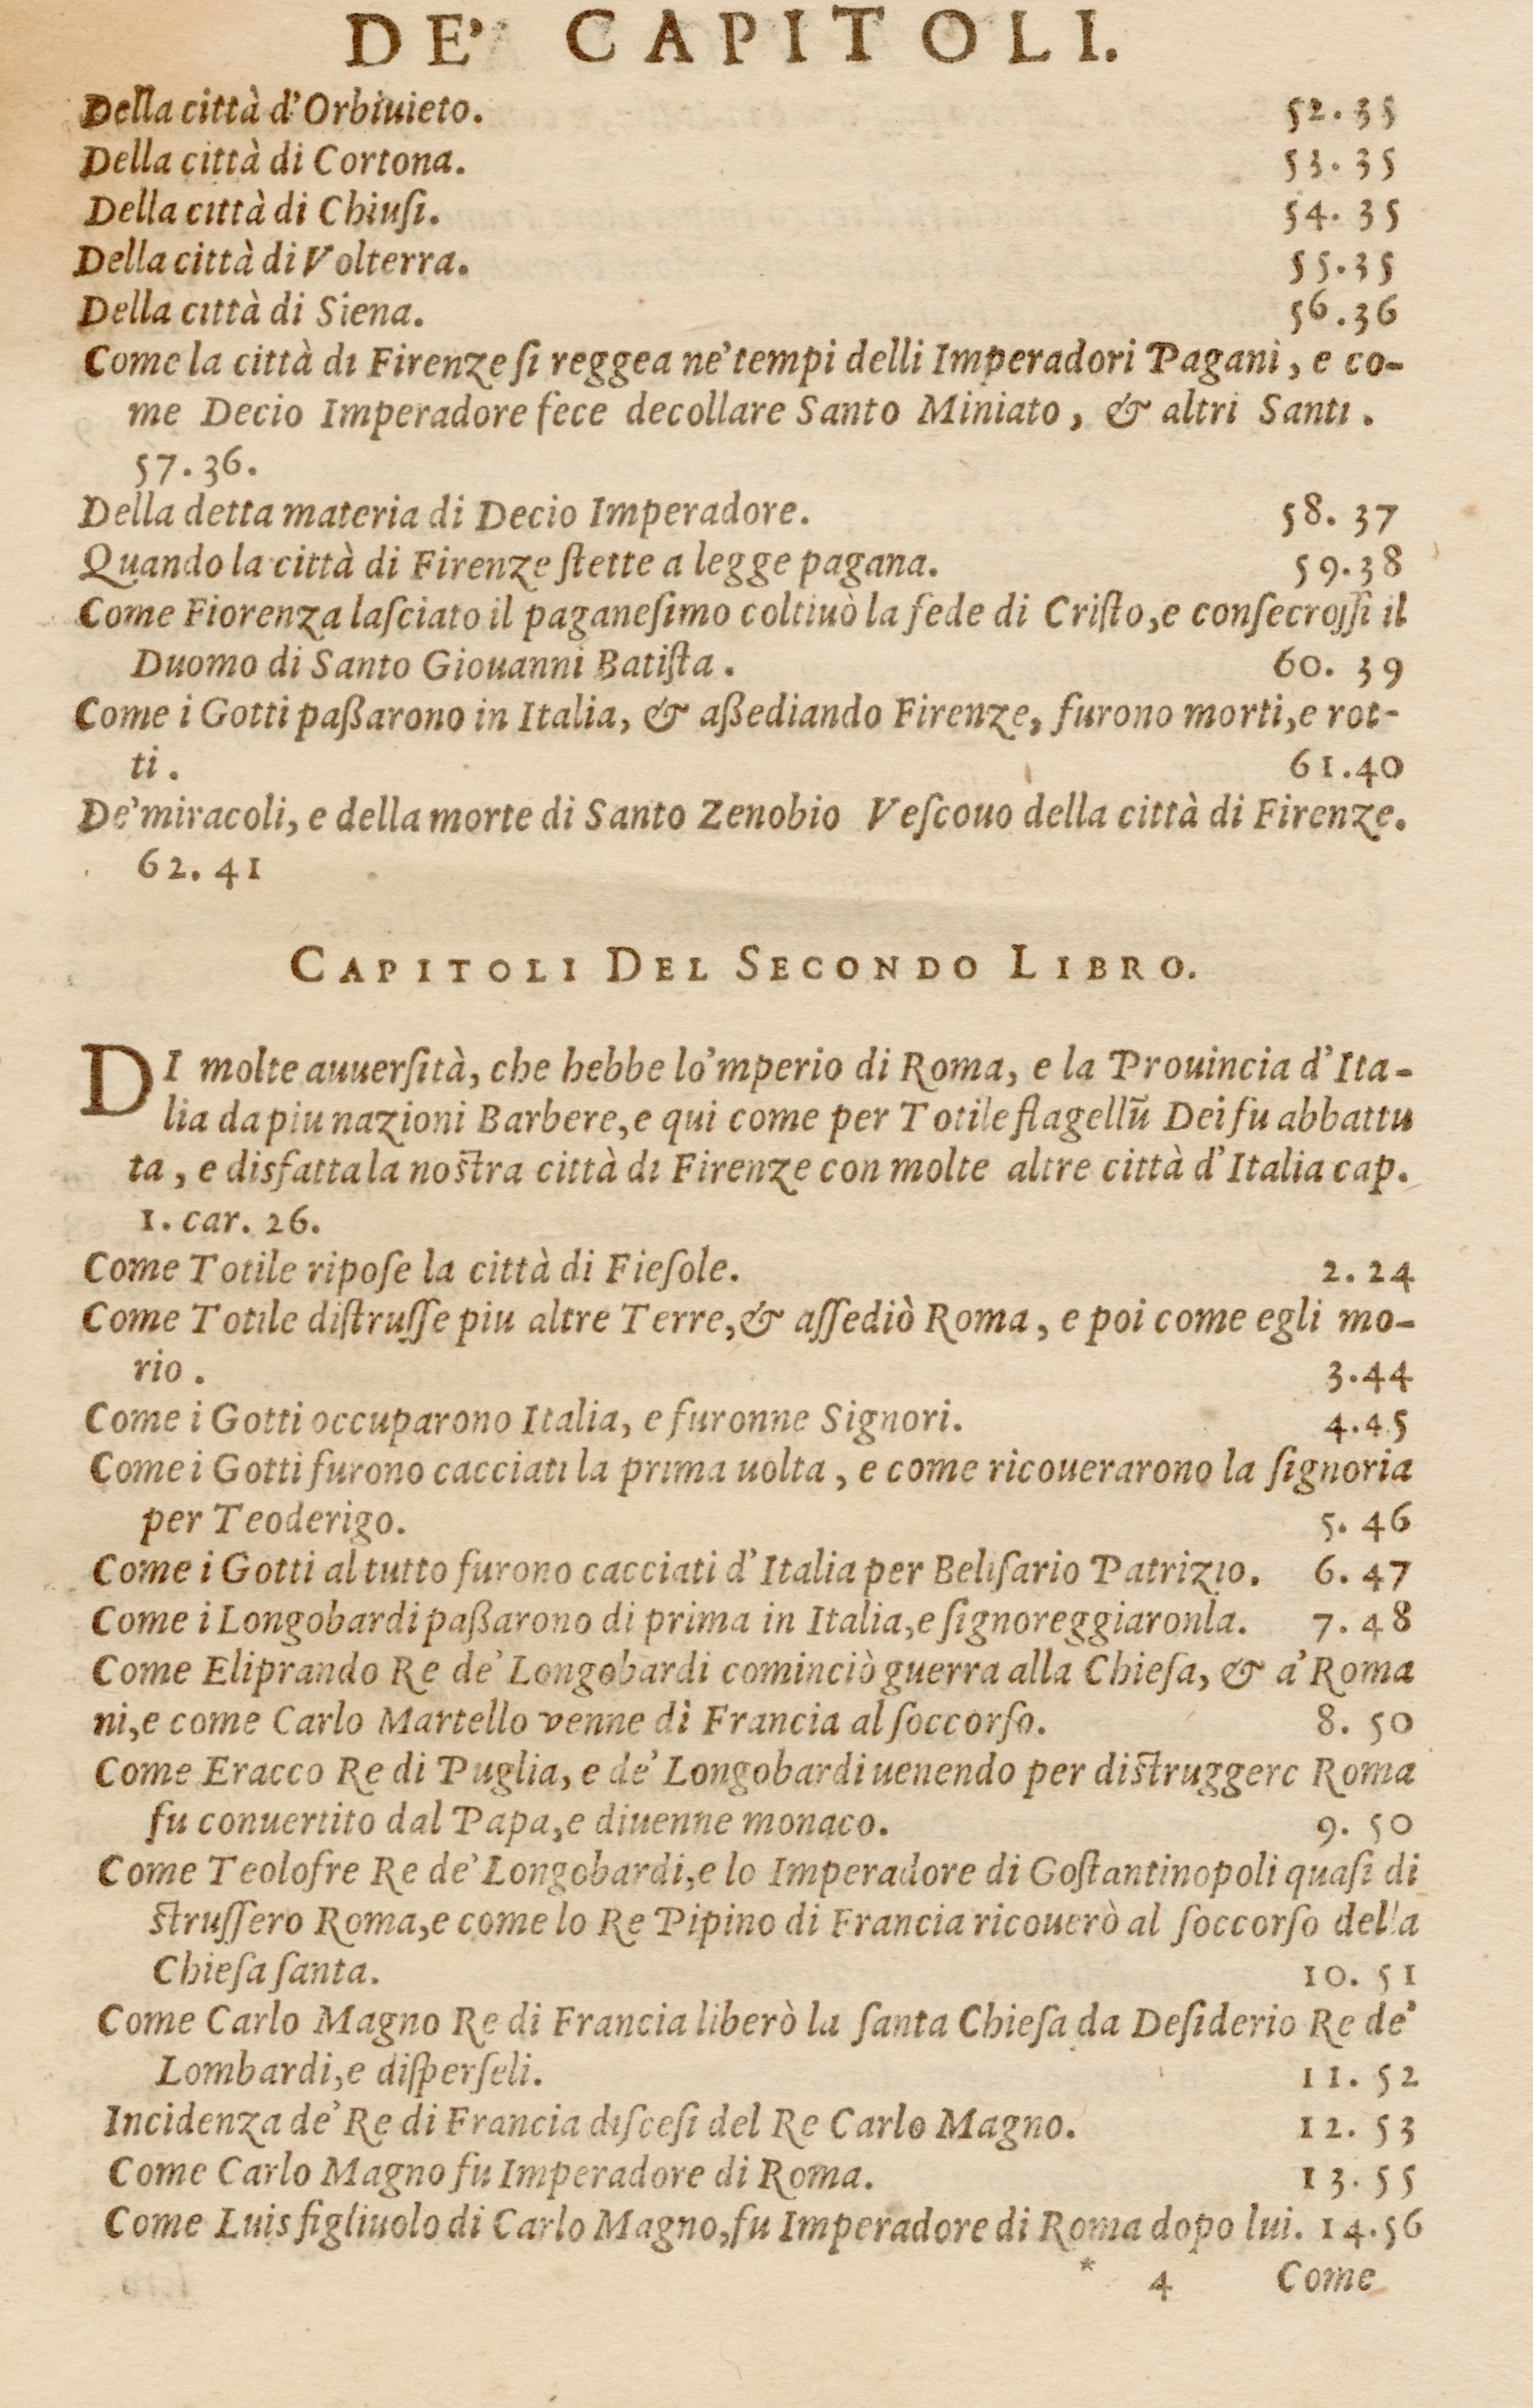 DE' CAPITOLI.
Della città d'Orbiuieto. 52. 35
Della città di Cortona. 53. 35
Della città di Chiusi. 54. 35
Della città di Volterra. 55. 35
Della città di Siena. 56. 36
Come la città di Firenze si reggea ne' tempi delli Imperadori Pagani, e co-
me Decio Imperadore fece decollare Santo Miniato, & altri Santi.
57. 36.
Della detta materia di Decio Imperadore. 58. 37
Quando la città di Firenze stette a legge pagana. 59. 38
Come Fiorenza lasciato il paganesimo coltiuò la fede di Cristo, e consecrossi il
Duomo di Santo Giouanni Batista. 60. 39
Come i Gotti paßarono in Italia, & aßediando Firenze, furono morti, e rot-
ti. 61. 40
De' miracoli, e della morte di Santo Zenobio Vescouo della città di Firenze.
62. 41
CAPITOLI DEL SECONDO LIBRO.
DI molte auuersità, che hebbe lo'mperio di Roma, e la Prouincia d'Ita-
lia da piu nazioni Barbere, e qui come per Totile flagellũ Dei fu abbattu
ta, e disfatta la nostra città di Firenze con molte altre città d'Italia cap.
1. car. 26.
Come Totile ripose la città di Fiesole. 2. 24
Come Totile distrusse piu altre Terre, & assediò Roma, e poi come egli mo-
rio. 3. 44
Come i Gotti occuparono Italia, e furonne Signori. 4. 45
Come i Gotti furono cacciati la prima uolta, e come ricouerarono la signoria
per Teoderigo. 5. 46
Come i Gotti al tutto furono cacciati d'Italia per Belisario Patrizio. 6. 47
Come i Longobardi paßarono di prima in Italia, e signoreggiaronla. 7. 48
Come Eliprando Re de' Longobardi cominciò guerra alla Chiesa, & a' Roma
ni, e come Carlo Martello venne di Francia al soccorso. 8. 50
Come Eracco Re di Puglia, e de' Longobardi uenendo per distruggere Roma
fu conuertito dal Papa, e diuenne monaco. 9. 50
Come Teolofre Re de' Longobardi, e lo Imperadore di Gostantinopoli quasi di
strussero Roma, e come lo Re Pipino di Francia ricouerò al soccorso della
Chiesa santa. 10. 51
Come Carlo Magno Re di Francia liberò la santa Chiesa da Desiderio Re de'
Lombardi, e disperseli. 11. 52
Incidenza de' Re di Francia discesi del Re Carlo Magno. 12. 53
Come Carlo Magno fu Imperadore di Roma. 13. 55
Come Luis figliuolo di Carlo Magno, fu Imperadore di Roma dopo lui. 14. 56
* 4 Come